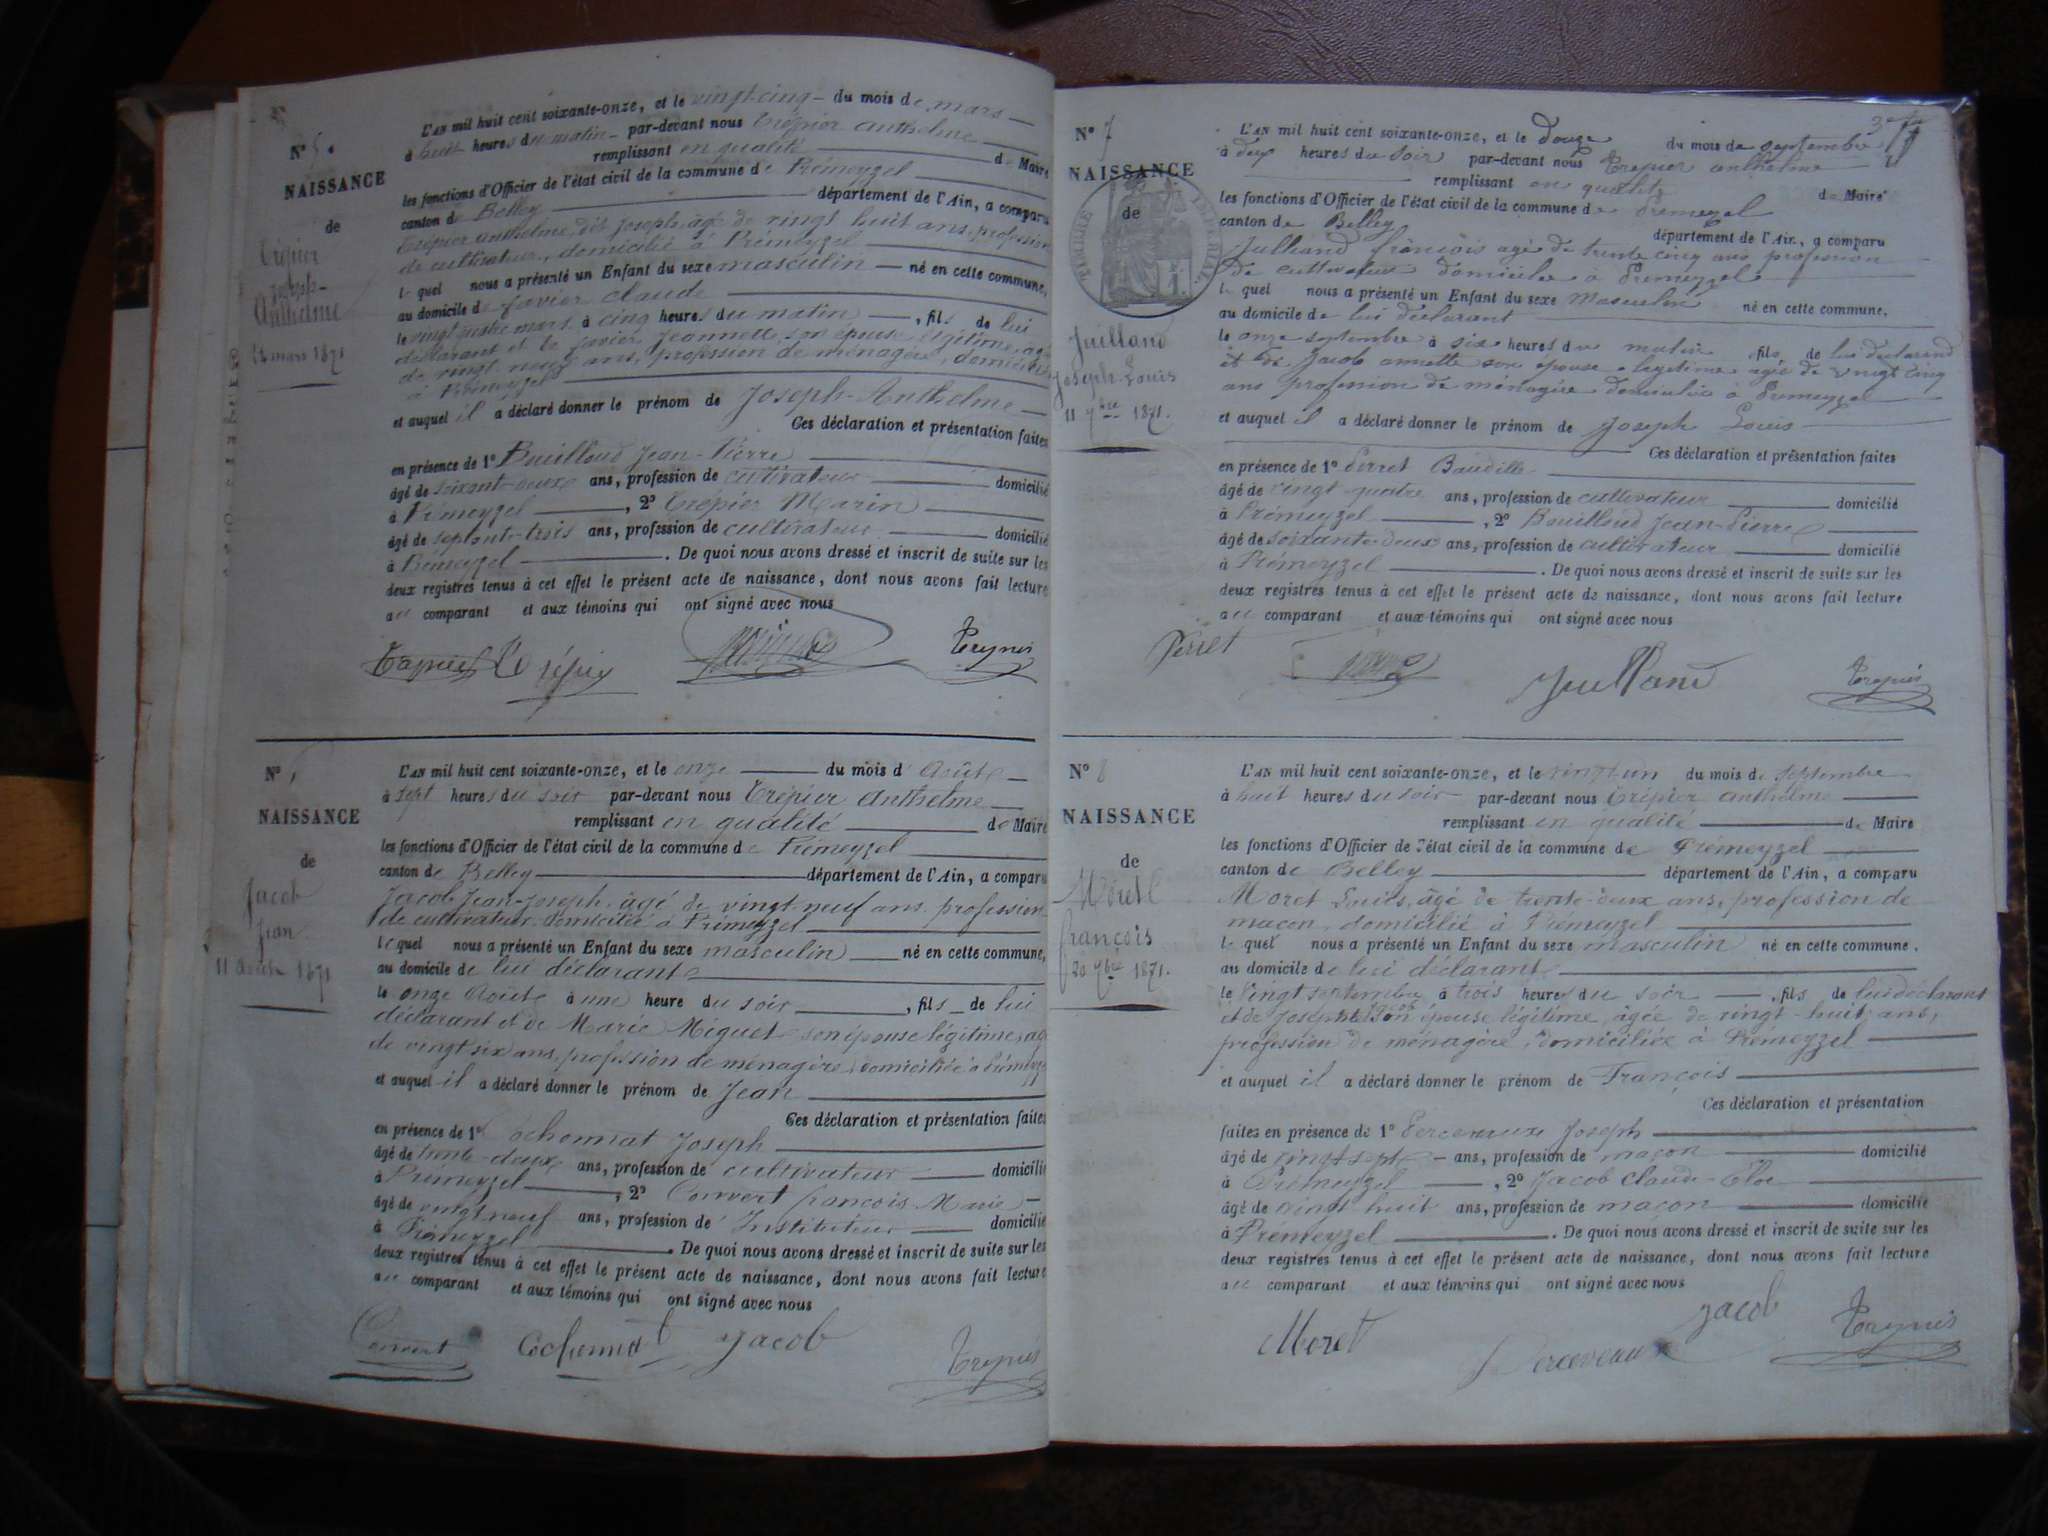 N° 5.
NAISSANCE
de
Trépier
Joseph-
Anthelme
24 mars 1871
L'AN mil huit cent soixante-onze, et le vingt-cinq du mois de mars
à huit heures du matin par-devant nous Trépier Anthelme
remplissant en qualité de Maire
les fonctions d'Officier de l'état civil de la commune de Prémeyzel
canton de Belley département de l'Ain, a comparu
Trépier Anthelme, dit Joseph, âgé de vingt huit ans, profession
de cultivateur, domicilié à Prémeyzel
lequel nous a présenté un Enfant du sexe masculin né en cette commune,
au domicile de Javier Claude
le vingt quatre mars à cinq heures du matin, fils de lui
déclarant et de Javier Jeannette son épouse légitime, agée
de vingt neuf ans, profession de ménagère, domiciliée
à Prémeyzel
et auquel il a déclaré donner le prénom de Joseph-Anthelme
Ces déclaration et présentation faites
en présence de 1° Bouilloud Jean-Pierre
âgé de soixante-deux ans, profession de cultivateur domicilié
à Prémeyzel, 2° Trépier Marin
âgé de septante-trois ans, profession de cultivateur domicilié
à Prémeyzel. De quoi nous avons dressé et inscrit de suite sur les
deux registres tenus à cet effet le présent acte de naissance, dont nous avons fait lecture
au comparant et aux témoins qui ont signé avec nous
Trépier
N°
NAISSANCE
de
Jacob
Jean
11 Août 1871
L'AN mil huit cent soixante-onze, et le onze du mois d'Août
à sept heures du soir par-devant nous Trépier Anthelme
remplissant en qualité de Maire
les fonctions d'Officier de l'état civil de la commune de Prémeyzel
canton de Belley département de l'Ain, a comparu
Jacob Jean-Joseph, âgé de vingt-neuf ans, profession
de cultivateur, domicilié à Prémeyzel
lequel nous a présenté un Enfant du sexe masculin né en cette commune,
au domicile de lui déclarant
le onze Août à une heure du soir, fils de lui
déclarant et de Marie Miguet son épouse légitime, agée
de vingt six ans, profession de ménagère, domiciliée à Prémeyzel
et auquel il a déclaré donner le prénom de Jean
Ces déclaration et présentation faites
en présence de 1° Cochonnat Joseph
âgé de trente-deux ans, profession de cultivateur domicilié
à Prémeyzel, 2° Convert François-Marie
âgé de vingt neuf ans, profession de Instituteur domicilié
à Prémeyzel. De quoi nous avons dressé et inscrit de suite sur les
deux registres tenus à cet effet le présent acte de naissance, dont nous avons fait lecture
au comparant et aux témoins qui ont signé avec nous
Convert Cochonnat Jacob
N° 7
NAISSANCE
de
TIMBRE IMPÉRIAL
Juilland
Joseph-Louis
11 7bre 1871.
L'AN mil huit cent soixante-onze, et le douze du mois de septembre
à deux heures du soir par-devant nous Trepier anthelme
remplissant en qualité de Maire
les fonctions d'Officier de l'état civil de la commune de Premeyzel
canton de Belley département de l'Ain, a comparu
Juilland françois agé de trente cinq ans profession
de cultivateur domicilié à Premeyzel
lequel nous a présenté un Enfant du sexe Masculin né en cette commune,
au domicile de lui déclarant
le onze septembre à six heures du matin fils de lui declarend
et de Jacob annette son épouse legitime agée de vingt cinq
ans profession de ménagère domiciliée à Premeyzel
et auquel il a déclaré donner le prénom de Joseph Louis
Ces déclaration et présentation faites
en présence de 1° Perret Baudille
âgé de vingt quatre ans, profession de cultivateur domicilié
à Prémeyzel, 2° Bouilloud Jean-Pierre
âgé de soixante-deux ans, profession de cultivateur domicilié
à Prémeyzel. De quoi nous avons dressé et inscrit de suite sur les
deux registres tenus à cet effet le présent acte de naissance, dont nous avons fait lecture
au comparant et aux témoins qui ont signé avec nous
Perret Juilland
N° 8
NAISSANCE
de
Moret
François
20 7bre 1871.
L'AN mil huit cent soixante-onze, et le vingt un du mois de septembre
à huit heures du soir par-devant nous Trépier Anthelme
remplissant en qualité de Maire
les fonctions d'Officier de l'état civil de la commune de Prémeyzel
canton de Belley département de l'Ain, a comparu
Moret Louis, âgé de trente-deux ans, profession de
maçon, domicilié à Prémeyzel
lequel nous a présenté un Enfant du sexe masculin né en cette commune,
au domicile de lui déclarant
le vingt septembre à trois heures du soir, fils de lui déclarant
et de Josephte son épouse légitime, agée de vingt-huit ans,
profession de ménagère, domiciliée à Prémeyzel
et auquel il a déclaré donner le prénom de François
Ces déclaration et présentation
faites en présence de 1° Perceveaux Joseph
âgé de vingt sept ans, profession de maçon domicilié
à Prémeyzel, 2° Jacob Claude-Éloi
âgé de vingt huit ans, profession de maçon domicilié
à Prémeyzel. De quoi nous avons dressé et inscrit de suite sur les
deux registres tenus à cet effet le présent acte de naissance, dont nous avons fait lecture
au comparant et aux témoins qui ont signé avec nous
Moret Perceveaux Jacob